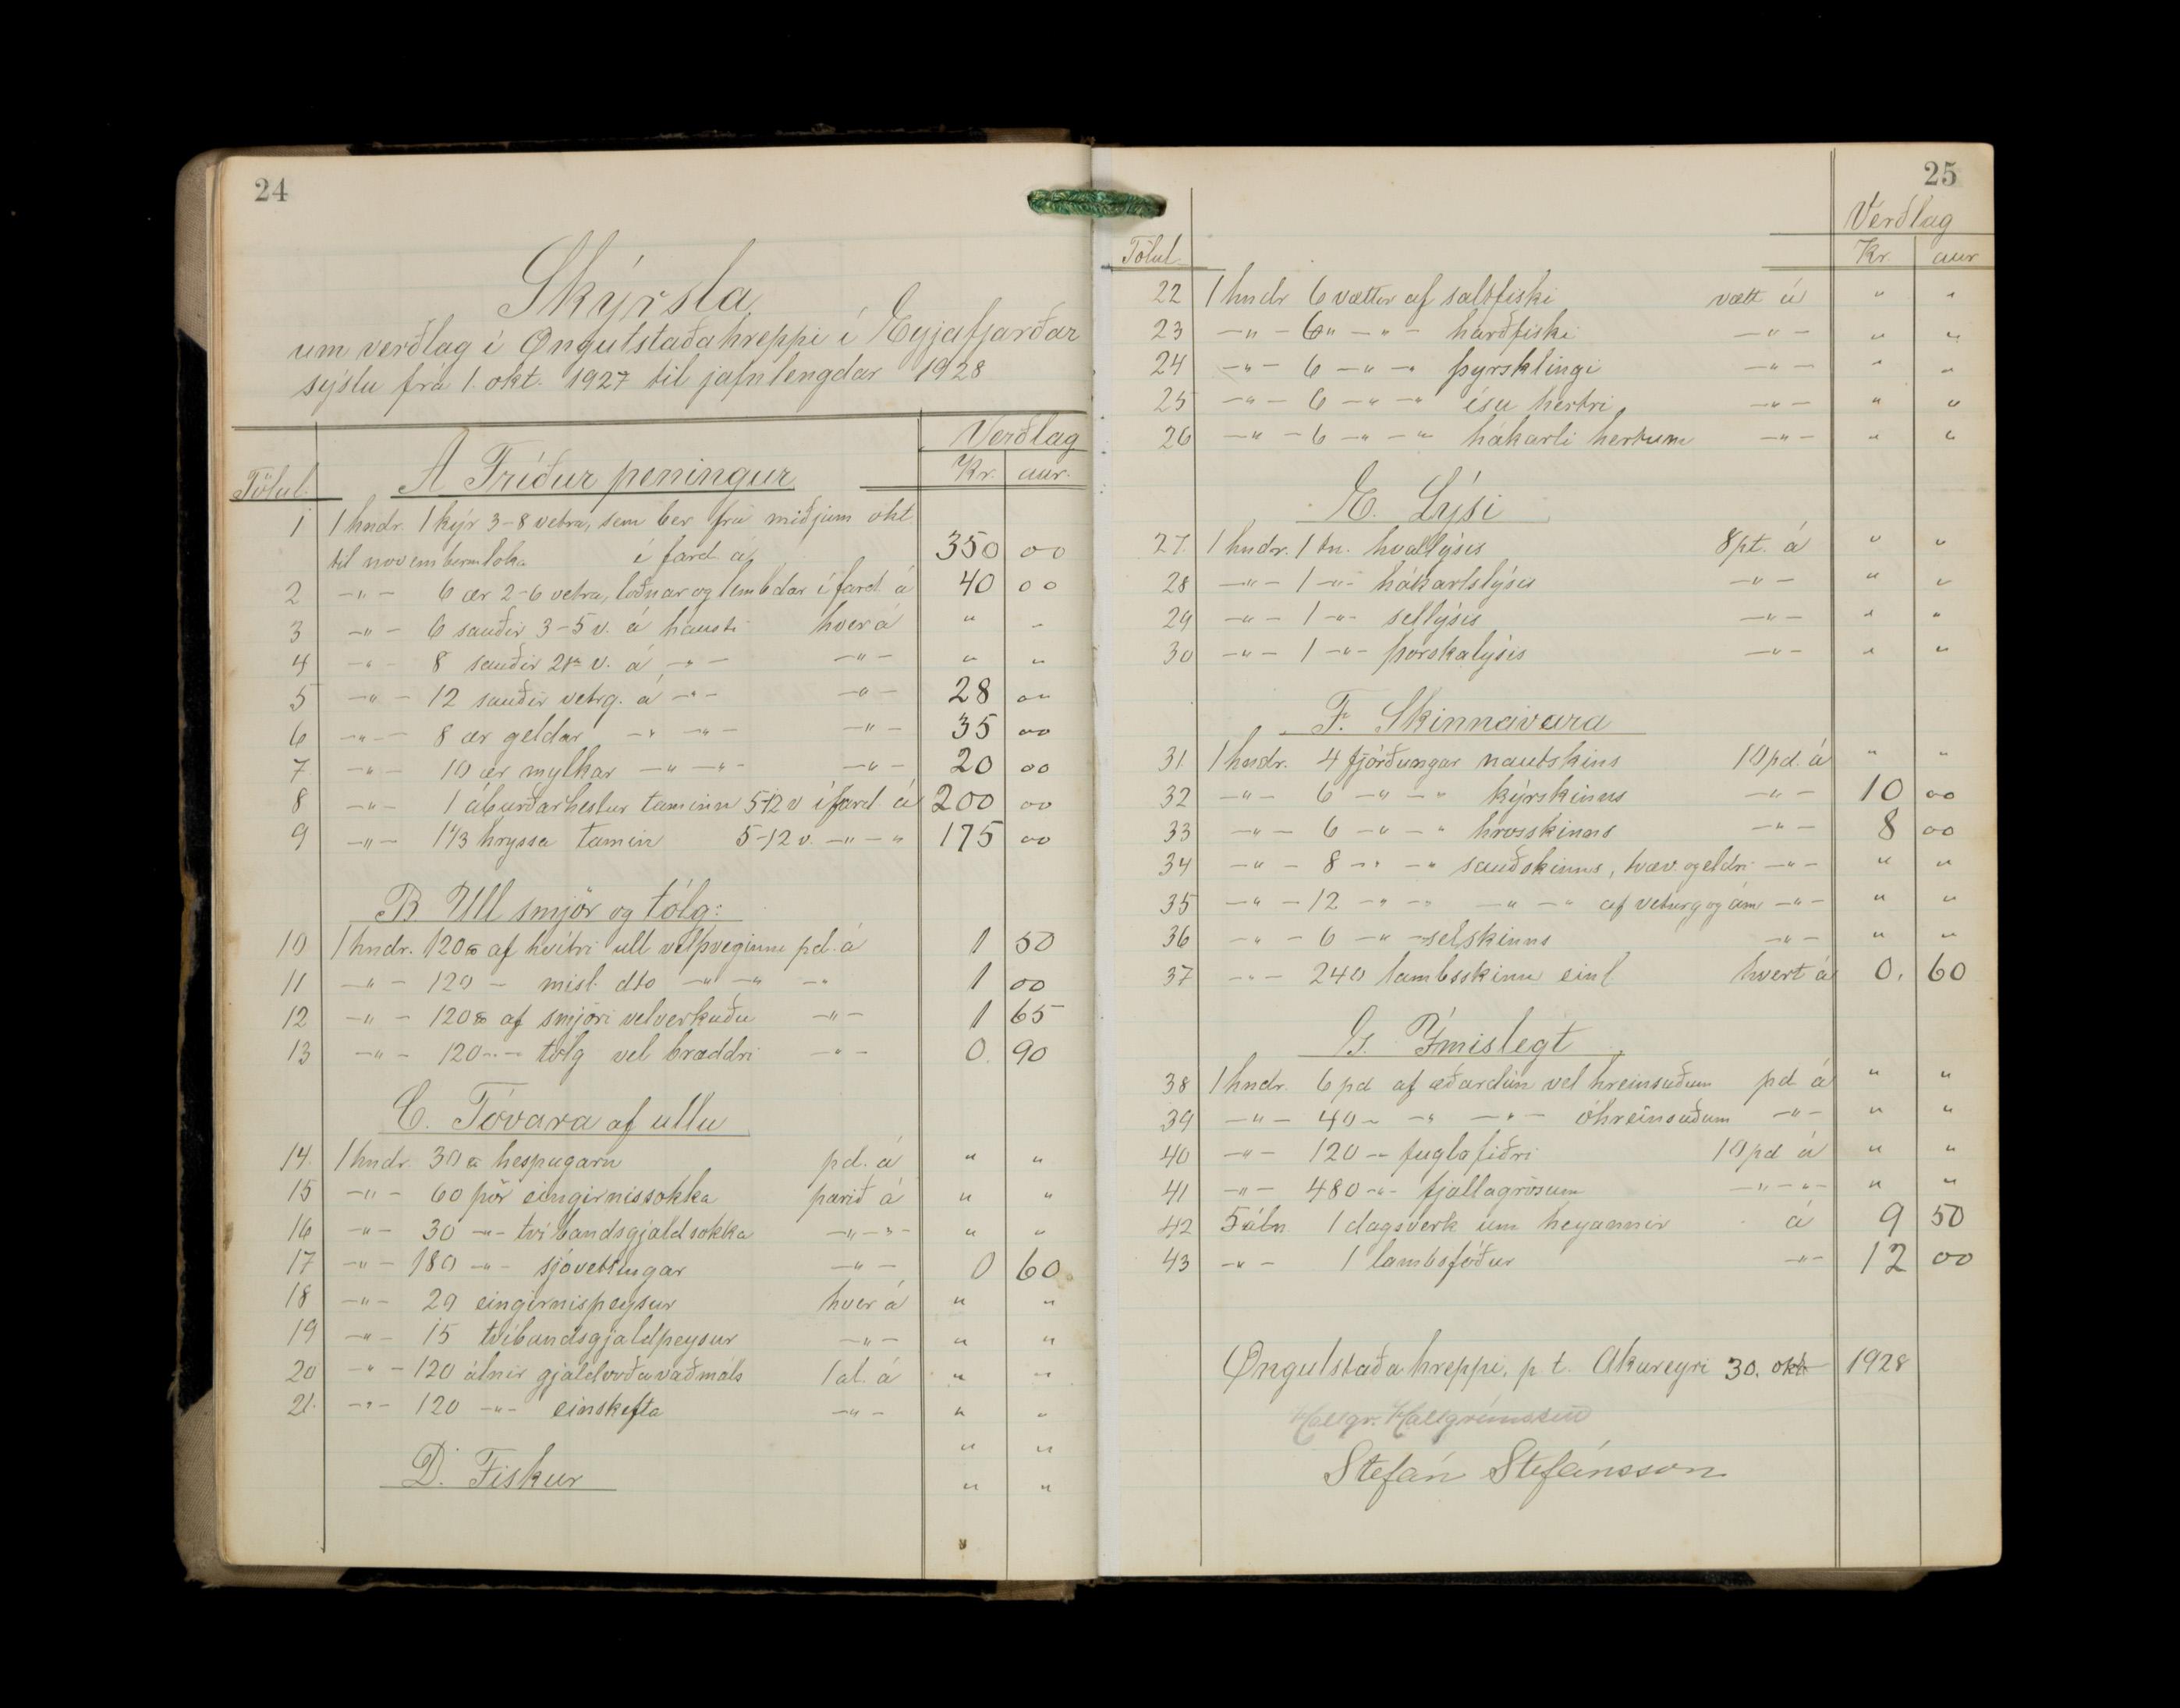 24
Skýrsla
um verðlag í Öngulstaðahreppi í Eyjafjarðar
sýslu frá 1. okt. 1927 til jafnlengdar 1928
Verðlag
Tölul. A Fríður peningur Kr. aur.
1 1 hndr. 1 kýr 3-8 vetra, sem ber frá miðjum okt.
til novemberm loka í fard. á 350 00
2 -"- 6 ær 2-6 vetra, loðnar og lembdar í fard. á 40 00
3 -"- 6 sauðir 3-5 v. á hausti hver á " "
4 -"- 8 sauðir 2ja v. á -"- -"- " "
5 -"- 12 sauðir vetrg. á -"- -"- 28 00
6 -"- 8 ær geldar -"- -"- -"- 35 00
7 -"- 10 ær mylkar -"- -"- -"- 20 00
8 -"- 1 áburðarhestur taminn 5-12 v í fard á 200 00
9 -"- 1 1/3 hryssa tamin 5-12 v. -"- " 175 00
B Ull smjör og tólg:
10 1 hndr. 120 af hvítri ull velþveginni pd. á 1 50
11 -"- 120 - misl. dto -"- -"- -" 1 00
12 -"- 120 af smjöri velverkuðu -"- 1 65
13 -"- 120 -"- tólg vel bræddri -"- 0. 90
C. Tóvara af ullu
14. 1 hndr. 30 hespugarn pd. á " "
15 -"- 60 pör eingirnissokka parið á " "
16 -"- 30 -"- tvíbandsgjaldsokka -"-"- " "
17 -"- 180 -"- sjóvetlingar -"- 0 60
18 -"- 20 eingirnispeysur hver á " "
19 -"- 15 tvíbandsgjaldpeysur -"- " "
20 -"- 120 álnir gjaldvoðavaðmáls 1 al. á " "
21. -"- 120 -"- einskefta -"- " "
" "
D. Fiskur " "
25
Verðlag
Tölul. Kr. aur
22 1 hndr 6 vættir af saltfiski vætt á " "
23 -"- 6 " -"- harðfiski -"- " "
24 -"- 6 -"- " þyrsklingi -"- " "
25 -"- 6 -"- " ísu hertri -"- " "
26 -"- 6 -"- -"- hákarli hertum -"- " "
E. Lýsi
27. 1 hndr. 1 tn. hvallýsis 8 pt. á " "
28 -"- 1 -"- hákarlslýsis -"- " "
29 -"- 1 -"- sellýsis -"- " "
30 -"- 1 -"- þorskalýsis -"- " "
F. Skinnavara
31. 1 hndr. 4 fjórðungar nautskins 10 pd. á " "
32 -"- 6 -"- " kýrskinns -"- 10 00
33 -"- 6 -"- " hrosskinns -"- 8 00
34 -"- 8 -"- " sauðskinns, tvæv. og eldri -"- " "
35 -"- 12 -"- -"- -"- " af veturg og ám -"- " "
36 -"- 6 -"- selskinns -"- " "
37 -"- 240 lambsskinn einl hvert á 0. 60
G. Ýmislegt
38 1 hndr. 6 pd af æðardún vel hreinsuðum pd á " "
39 -"- 40 - -" -"- óhreinsuðum -"- " "
40 -"- 120 -"- fuglafiðri 10 pd á " "
41 -"- 480 -"- fjallagrösum -"-"- " "
42 5 áln. 1 dagsverk um heyannir á 9 50
43 -"- 1 lambsfóður -"- 12 00
Öngulstaðahreppi, p t. Akureyri 30. okt 1928
Hallgr. Hallgrímsson
Stefán Stefánsson